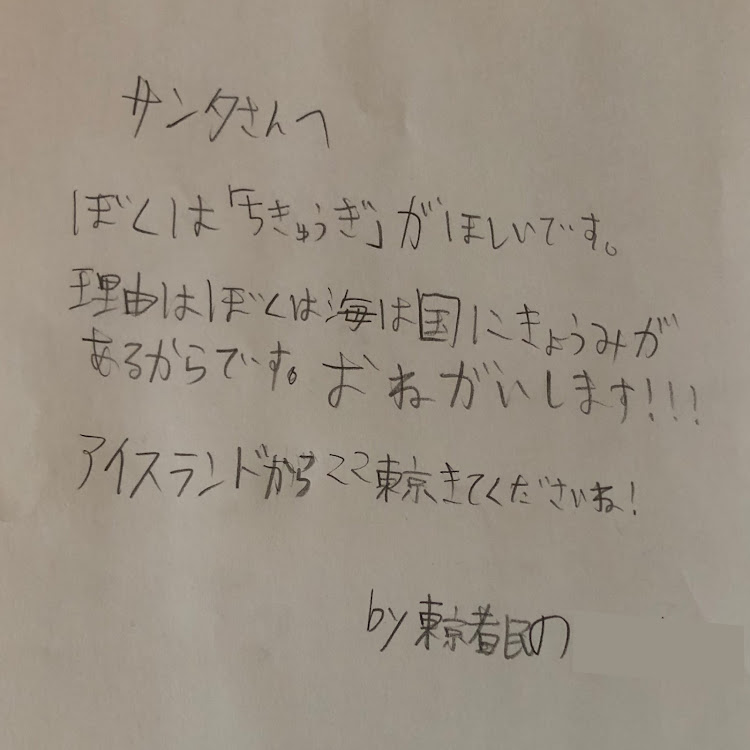 サンタさんへ
ぼくは「ちきゅうぎ」がほしいです。
理由はぼくは海は国にきょうみが
あるからです。おねがいします!!!
アイスランドからここ東京きてくださいね!
by東京都民の